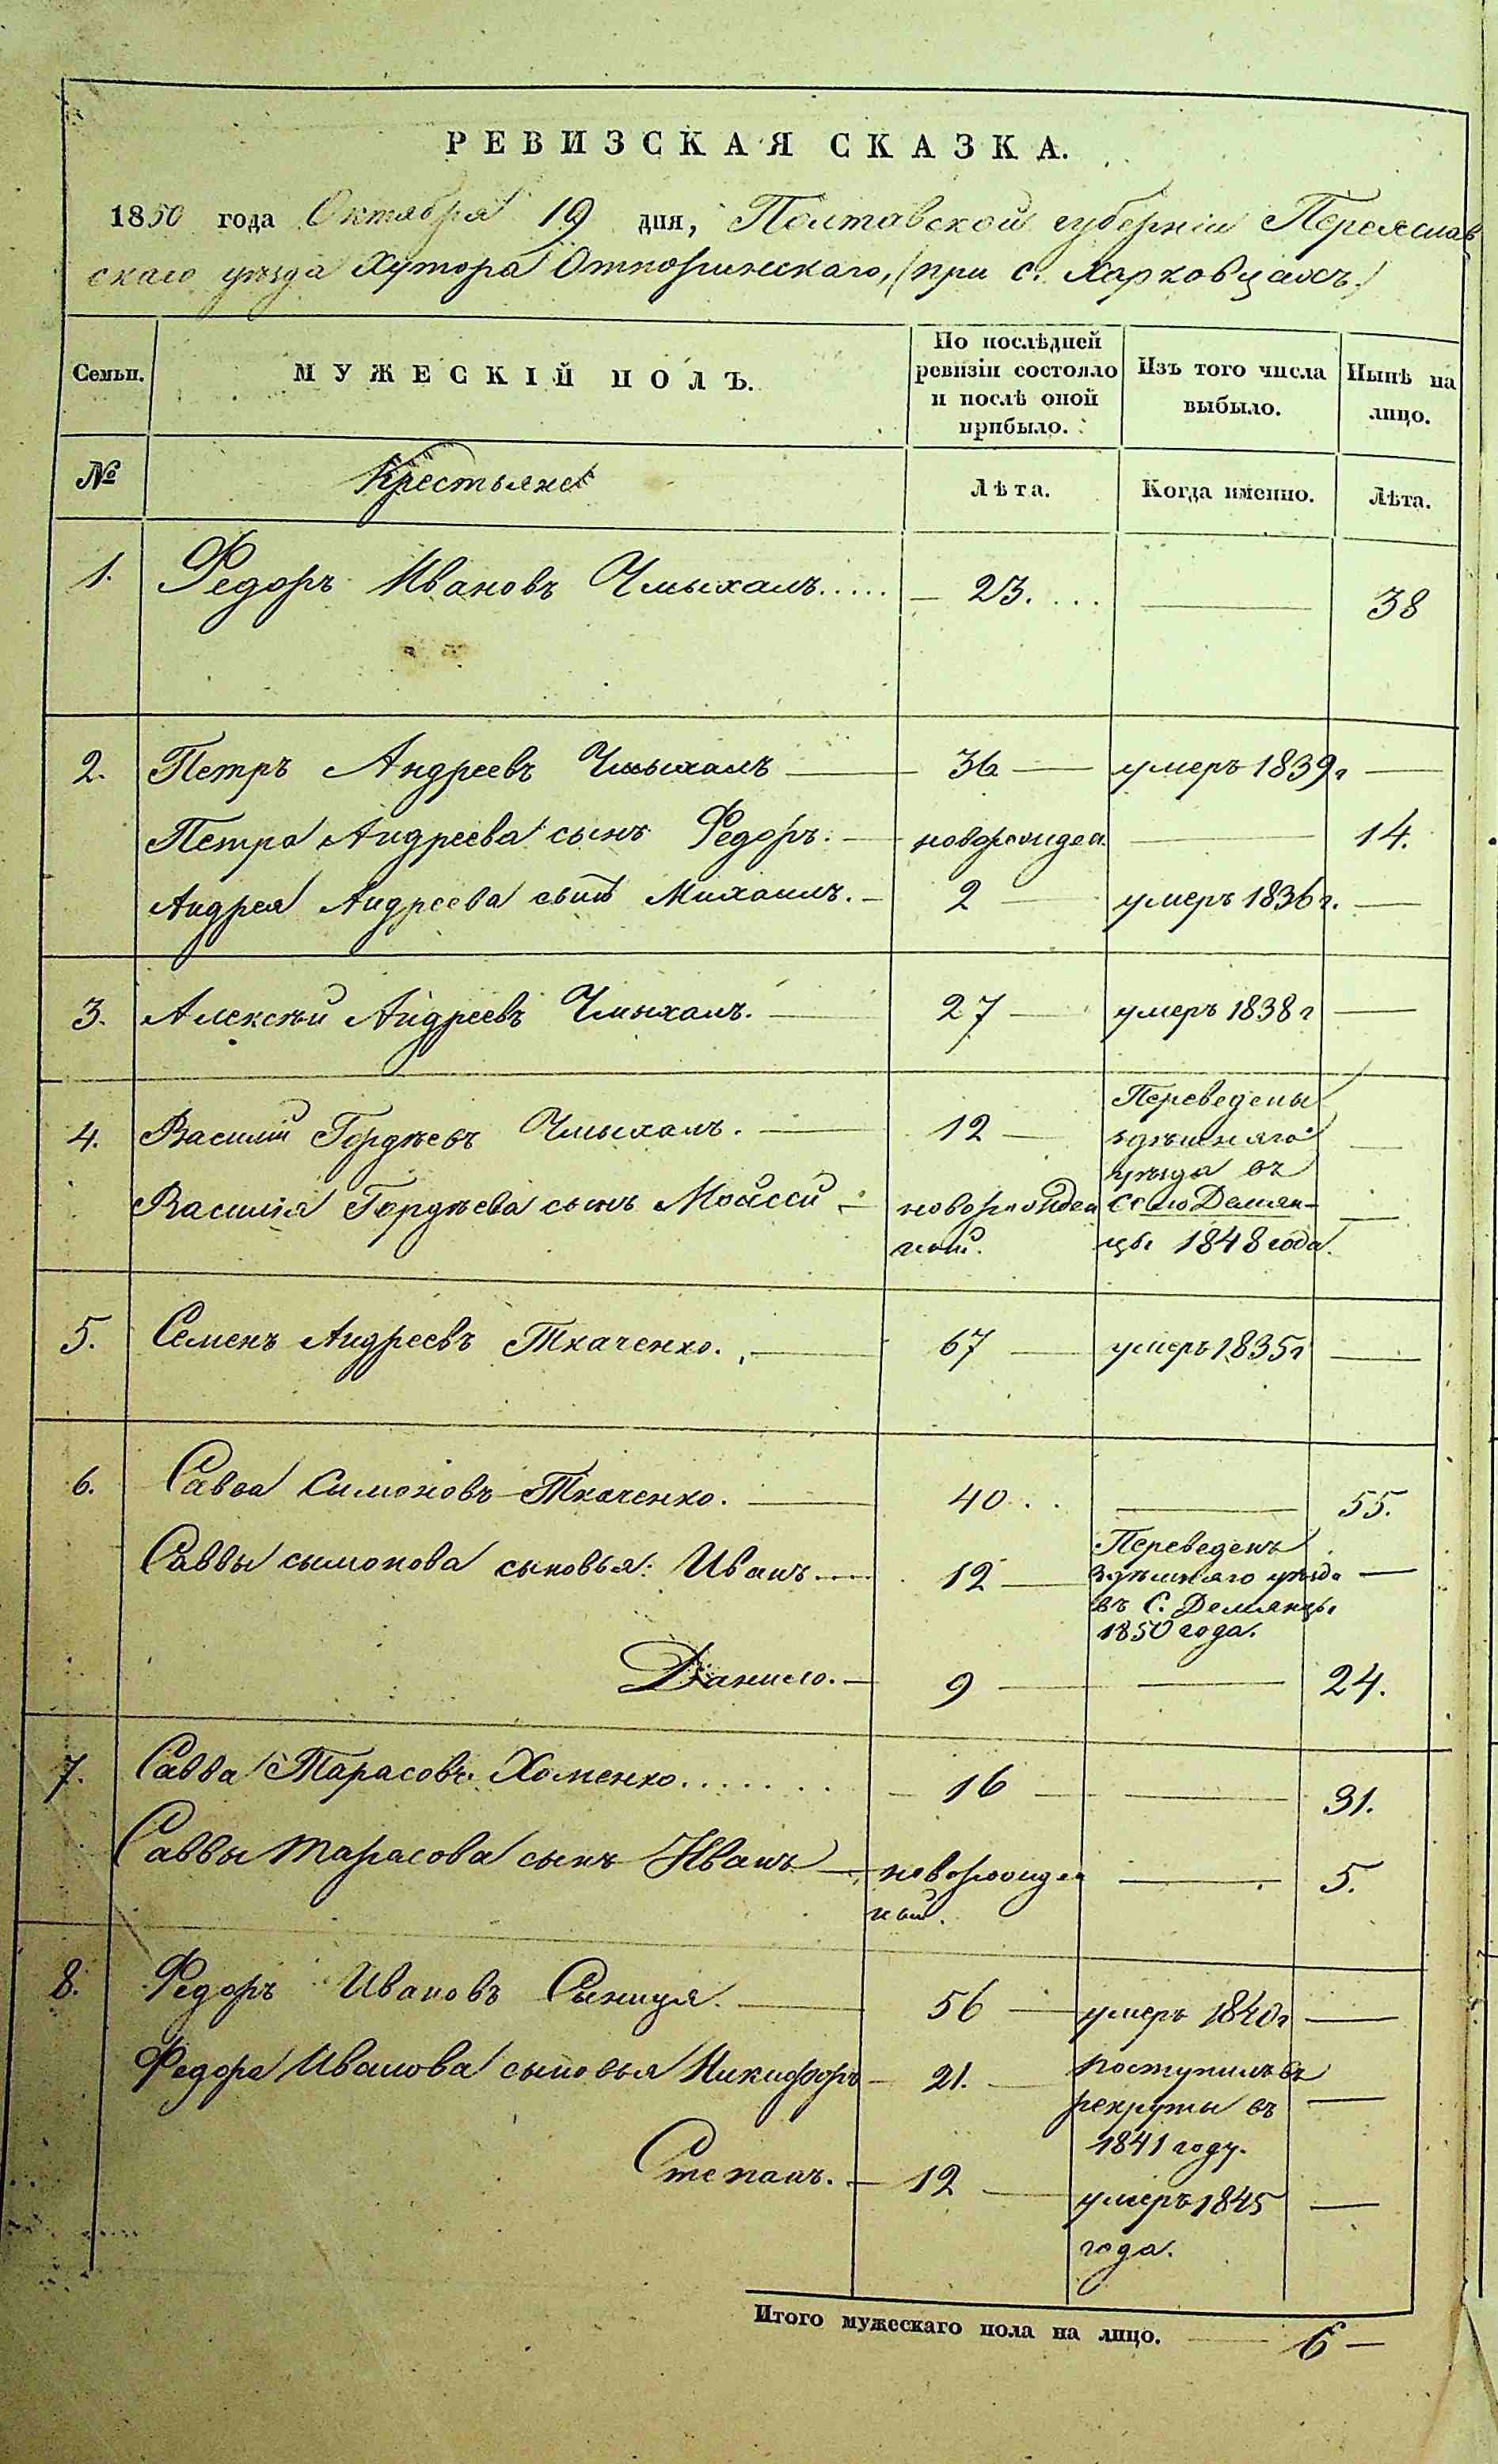 РЕВИЗСКАЯ СКАЗКА.
1850 года Октября 19 дня, Полтавской губерніи Переяслав
скаго уѣзда Хутора (при с. Харковцахъ.)
Семьи. МУЖЕСКІЙ ПОЛЪ. По послѣдней ревизіи состояло и послѣ оной прибыло. Изъ того числа выбыло. Нынѣ на лицо.
№ Крестьяне Лѣта. Когда именно. Лѣта.
1. Федоръ Ивановъ Чмыхалъ..... — 23.... — 38
2. Петръ Андреевъ Чмыхалъ — 36 — умеръ 1839г —
Петра Андреева сынъ Федоръ. — новорожден. — 14.
Андрея Андреева сынъ Михаилъ. — 2 — умеръ 1836г. —
3. Алексѣй Андреевъ Чмыхалъ. — 27 — умеръ 1838г —
4. Василій Гордѣевъ Чмыхалъ. — 12 — Переведены
здѣшняго —
уѣзда въ
Василія Гордѣева сынъ Моисей — новорожден Село Демян- —
ный. цы 1848 года.
5. Семенъ Андреевъ Ткаченко. — 67 — умеръ 1835г —
6. Савва Симоновъ Ткаченко. — 40.. — 55.
Саввы сымонова сыновья: Иванъ.... 12 — Переведенъ
здѣшняго уѣзда —
въ С. Демянцы
1850 года.
Данило. — 9 — — 24.
7. Савва Тарасовъ Хоменко....... — 16 — — 31.
Саввы Тарасова сынъ Иванъ — новорожден — 5.
ный.
8. Федоръ Ивановъ Сыница. — 56 — умеръ 1840г —
Федора Иванова сыновья Никифоръ — 21. — поступилъ въ
рекруты въ —
1841 году.
Степанъ. — 12 — умеръ 1845 —
года.
Итого мужескаго пола на лицо. — 6 —